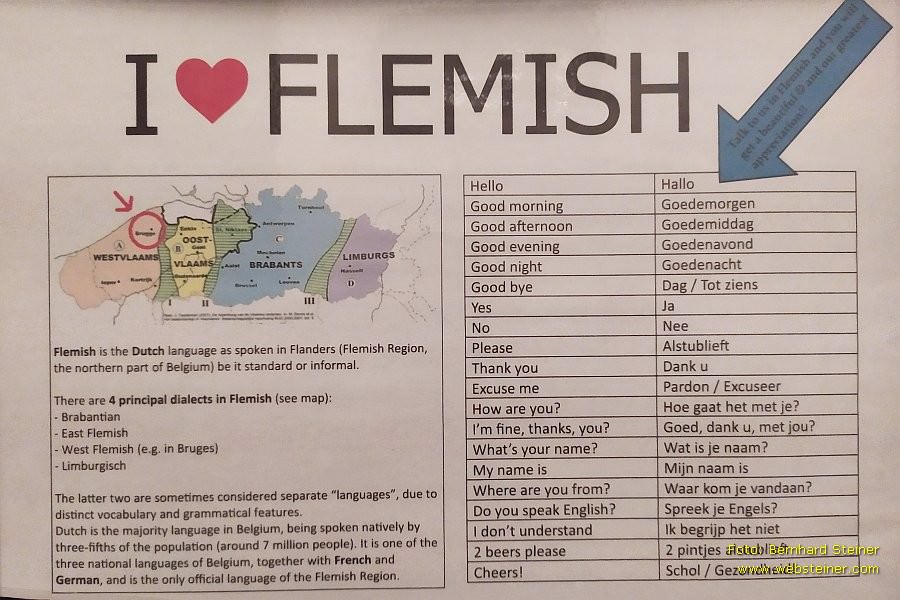 I ♥ FLEMISH
Talk to us in Flemish and you will
get a beautiful ☺ and our greatest
appreciation!!
WESTVLAAMS
A
Brugge
Ieper
Kortrijk
I
OOST-
VLAAMS
B
Eeklo
Gent
Oudenaarde
II
St. Niklaas
Aalst
Antwerpen
Turnhout
C
Mechelen
BRABANTS
Brussel
Leuven
III
LIMBURGS
Hasselt
D
Flemish is the Dutch language as spoken in Flanders (Flemish Region,
the northern part of Belgium) be it standard or informal.
There are 4 principal dialects in Flemish (see map):
- Brabantian
- East Flemish
- West Flemish (e.g. in Bruges)
- Limburgisch
The latter two are sometimes considered separate “languages”, due to
distinct vocabulary and grammatical features.
Dutch is the majority language in Belgium, being spoken natively by
three-fifths of the population (around 7 million people). It is one of the
three national languages of Belgium, together with French and
German, and is the only official language of the Flemish Region.
Hello Hallo
Good morning Goedemorgen
Good afternoon Goedemiddag
Good evening Goedenavond
Good night Goedenacht
Good bye Dag / Tot ziens
Yes Ja
No Nee
Please Alstublieft
Thank you Dank u
Excuse me Pardon / Excuseer
How are you? Hoe gaat het met je?
I’m fine, thanks, you? Goed, dank u, met jou?
What’s your name? Wat is je naam?
My name is Mijn naam is
Where are you from? Waar kom je vandaan?
Do you speak English? Spreek je Engels?
I don’t understand Ik begrijp het niet
2 beers please 2 pintjes
Cheers! Schol /
Foto: Bernhard Steiner
www.websteiner.com